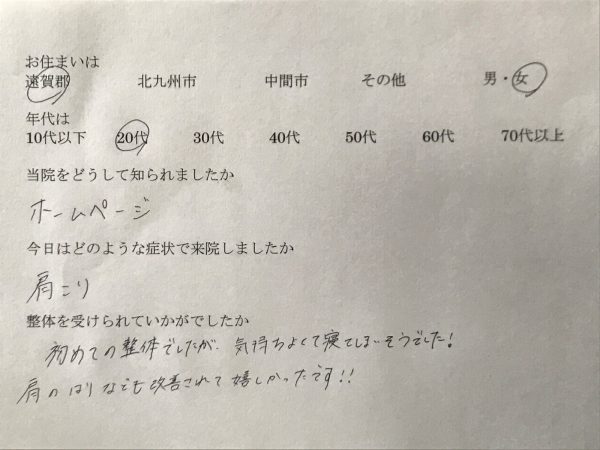 お住まいは
遠賀郡 北九州市 中間市 その他 男・女
年代は
10代以下 20代 30代 40代 50代 60代 70代以上
当院をどうして知られましたか
ホームページ
今日はどのような症状で来院しましたか
肩こり
整体を受けられていかがでしたか
初めての整体でしたが、気持ちよくて寝てしまいそうでした!
肩のはりなども改善されて嬉しかったです!!